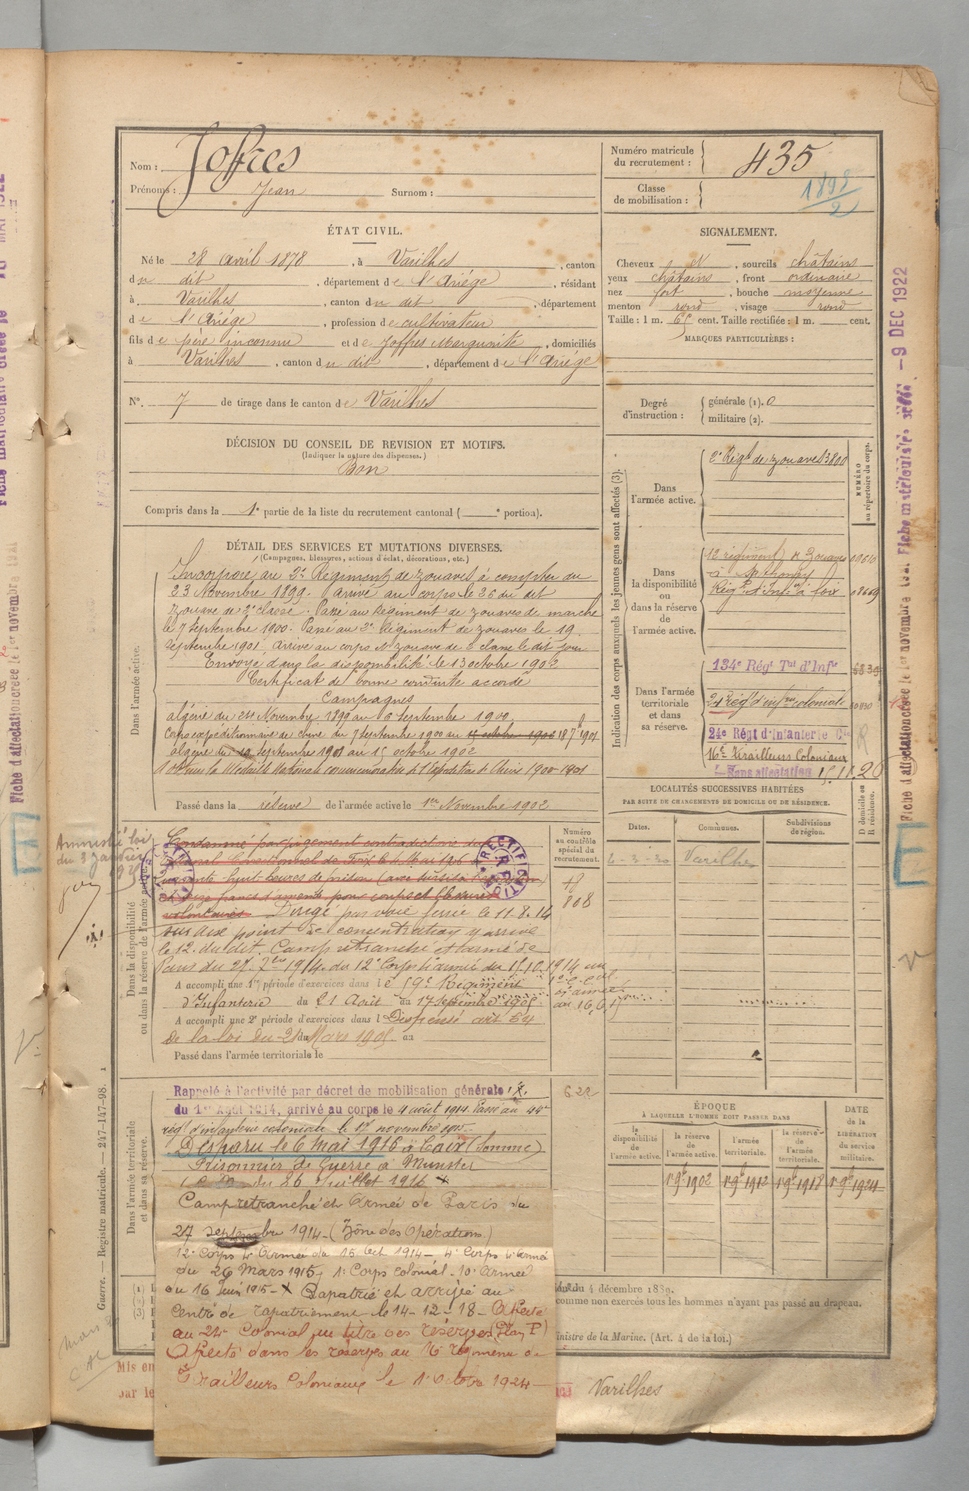 Nom : Joffres
Prénoms : Jean Surnom :
Numéro matricule du recrutement : 435
Classe de mobilisation : 1898/2
ÉTAT CIVIL.
Né le 28 avril 1878, à Varilhes, canton
du dit, département de l'Ariége, résidant
à Varilhes, canton du dit, département
de l'Ariége, profession de cultivateur
fils de père inconnu et de Joffres Marguerite, domiciliés
à Varilhes, canton du dit, département de l'Ariége
N°. 7 de tirage dans le canton de Varilhes
SIGNALEMENT.
Cheveux N, sourcils châtains
yeux châtains, front ordinaire
nez fort, bouche moyenne
menton rond, visage rond
Taille : 1 m. cent. Taille rectifiée : 1 m. cent.
MARQUES PARTICULIÈRES :
DÉCISION DU CONSEIL DE REVISION ET MOTIFS.
(Indiquer la nature des dispenses.)
Bon
Compris dans la 1e partie de la liste du recrutement cantonal ( e portion).
Degré d'instruction : générale (1). 0
militaire (2).
Indication des corps auxquels les jeunes gens sont affectés (3).
NUMÉRO au répertoire du corps.
Dans l'armée active. 2e Régt de Zouaves 3800
Dans la disponibilité ou dans la réserve de l'armée active.
Régt d'Infie à Foix
Dans l'armée territoriale et dans sa réserve.
134e Régt Tal d'Infie
24 Régt d'infrie coloniale
24e Régt d'Infanterie Cle
16e Tirailleurs Coloniaux
Sans affectation
DÉTAIL DES SERVICES ET MUTATIONS DIVERSES.
(Campagnes, blessures, actions d'éclat, décorations, etc.)
Dans l'armée active.
Incorporé au 2e Régiment de zouaves à compter du
23 Novembre 1899. Arrivé au corps le 26 du dit
zouave de 2e classe. Passé au Régiment de zouaves de marche
le 7 Septembre 1900. Passé au 2e Régiment de zouaves le 19
Septembre 1901. Arrivé au corps et zouave de 2 classe le dit jour
Envoyé dans la disponibilité le 13 octobre 1902
Certificat de bonne conduite accordé
Campagnes
algérie du 24 Novembre 1899 au 6 Septembre 1900
Corps expéditionnaire de chine du 7 Septembre 1900 au 18 7bre 1901
algérie du 19 Septembre 1901 au 15 octobre 1902
Passé dans la réserve de l'armée active le 1er Novembre 1902
Amnistié loi
du 3 janvier
1925
Dans la disponibilité ou dans la réserve de l'armée active.
Condamné par jugement contradictoire du
RECTIFICATION
volontaires Dirigé par voie ferrée le 11.8.14
sur aux point de concentration y arrivé
le 12 du dit. Camp retranché et armée de
Paris du 27. 7bre 1914. du 12e Corps d'armée du 15.10.1914 au
A accompli une 1re période d'exercices dans le 59e Régiment
d'Infanterie du 21 Août au 17 septembre 1905
A accompli une 2e période d'exercices dans l Dispensé art 54
de la loi du 21 du Mars 1905 au
Passé dans l'armée territoriale le
Numéro au contrôle spécial du recrutement.
808
622
LOCALITÉS SUCCESSIVES HABITÉES
PAR SUITE DE CHANGEMENTS DE DOMICILE OU DE RÉSIDENCE.
Dates. Communes. Subdivisions de région. D domicile ou R résidence.
6-3-30 Varilhes
Dans l'armée territoriale et dans sa réserve.
Rappelé à l'activité par décret de mobilisation générale
du 1er Août 1914, arrivé au corps le 4 août 1914. Passé au 44e
rég d'infanterie coloniale le 17 novembre 1915.
Disparu le 6 mai 1916 à Caix (Somme)
Prisonnier de Guerre à Munster
du 26 Juillet 1916 X
Camp retranché et Armée de Paris du
27 septembre 1914 - (Zône des Opérations)
12e Corps 4e Armée du 15 Oct 1914 - 4e Corps 4e Armée
du 26 Mars 1915, 1er Corps colonial - 10e Armée
du 16 Juin 1915 - X Rapatrié et arrivé au
Centre de rapatriement le 14-12-18 - Affecté
au 24e Colonial au titre des réserves (Plan P)
Affecté dans les réserves au 16 régiment de
Tirailleurs Coloniaux le 1 Octobre 1924 -
ÉPOQUE
À LAQUELLE L'HOMME DOIT PASSER DANS
la disponibilité de l'armée active. la réserve de l'armée active. l'armée territoriale. la réserve de l'armée territoriale.
DATE de la LIBÉRATION du service militaire.
1er 9bre 1902 1er 9bre 1912 1er 9bre 1918 1er 9bre 1924
du 4 décembre 1889.
comme non exercés tous les hommes n'ayant pas passé au drapeau.
inistre de la Marine. (Art. 4 de la loi.)
Varilhes
Mis en
par le
Guerre. — Registre matricule. — 247-147-98.
- 9 DEC 1922